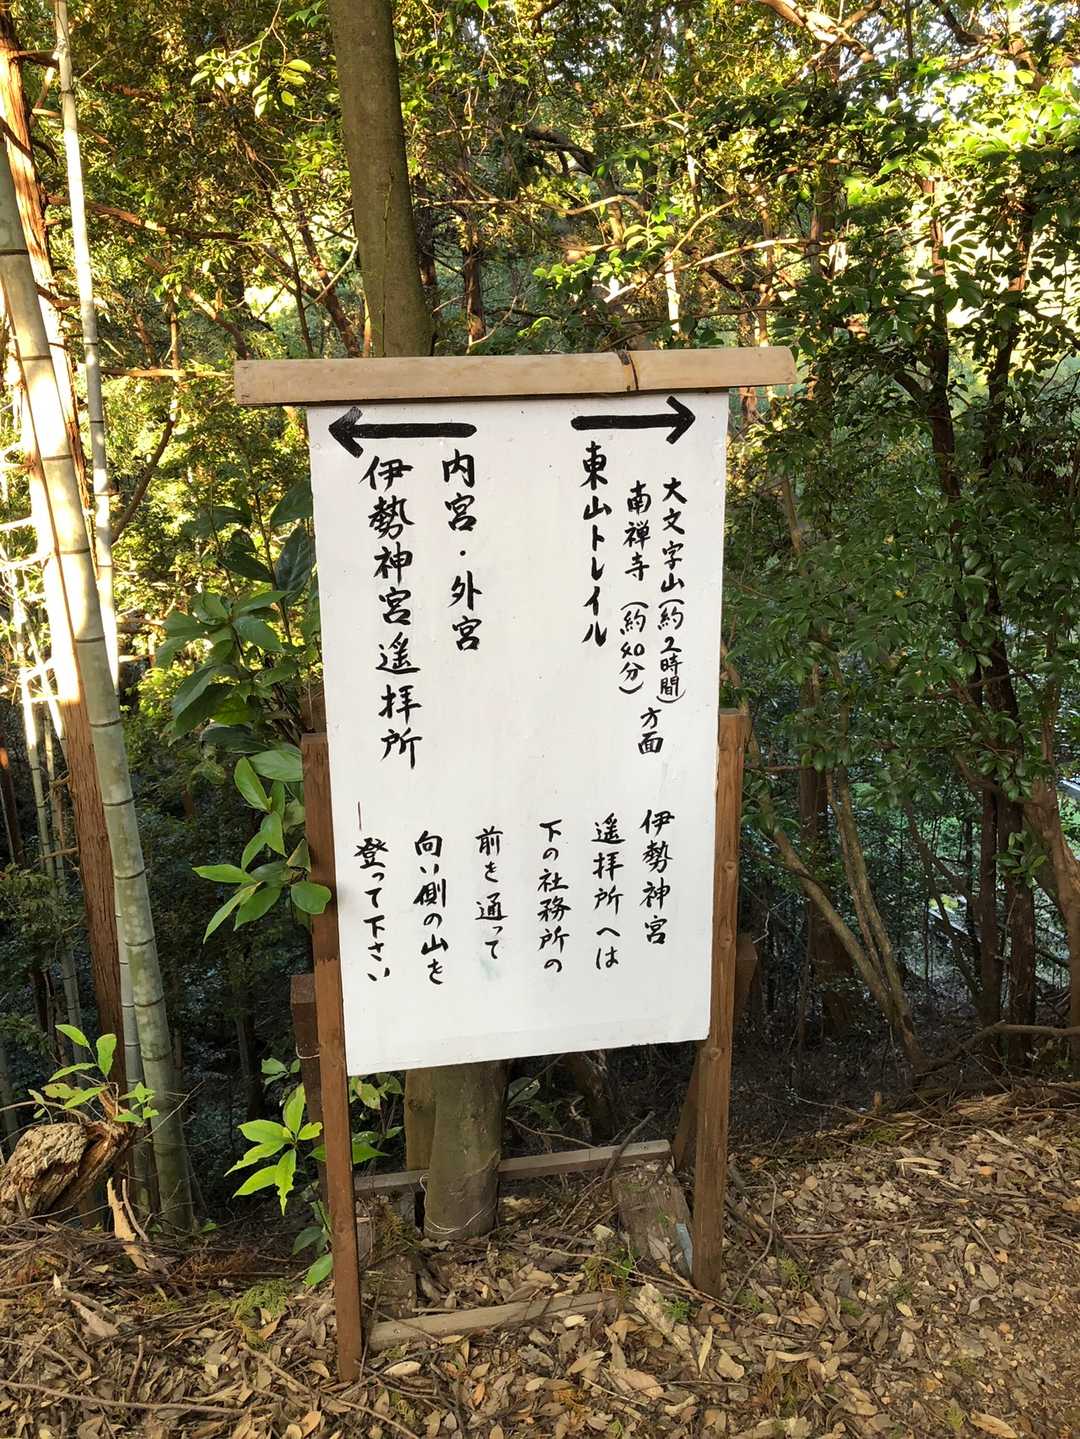 大文字山(約2時間)
南禅寺(約40分)方面
東山トレイル
内宮・外宮
伊勢神宮遥拝所
伊勢神宮
遥拝所へは
下の社務所の
前を通って
向い側の山を
登って下さい